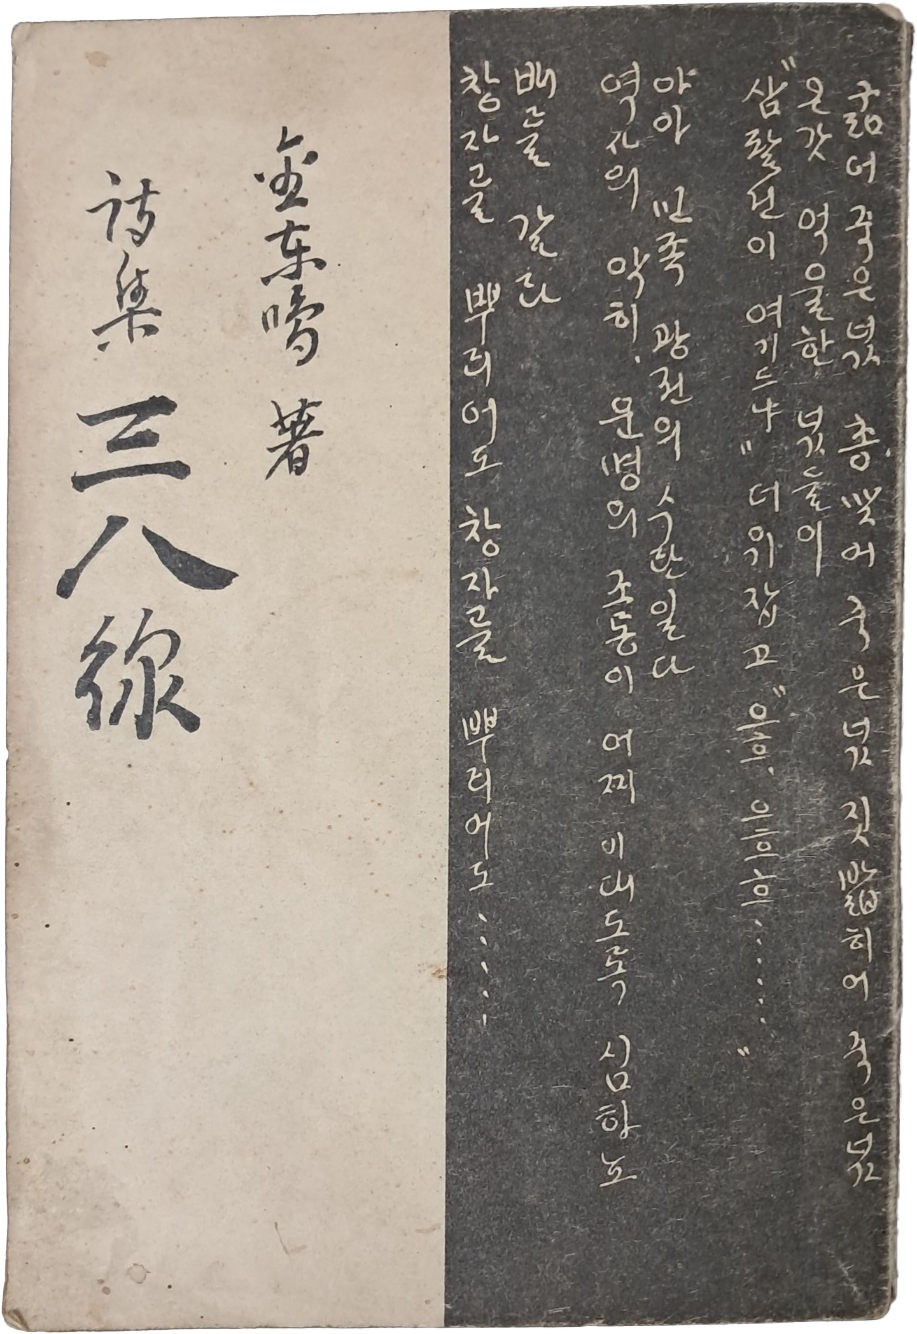 굶어 죽은넋 총 맞어 죽은넋 짓밟히어 죽은넋
온갖 억울한 넋들이
“삼팔선이 여기드냐” 더위잡고 “으흐, 으흐흐……”
아아 민족 수난일다
역사의 악희, 운명의 조롱이 어찌 이대도록 심하뇨
배를 갈라
창자를 뿌리어도 창자를 뿌리어도……
金東鳴 著
詩集 三八線